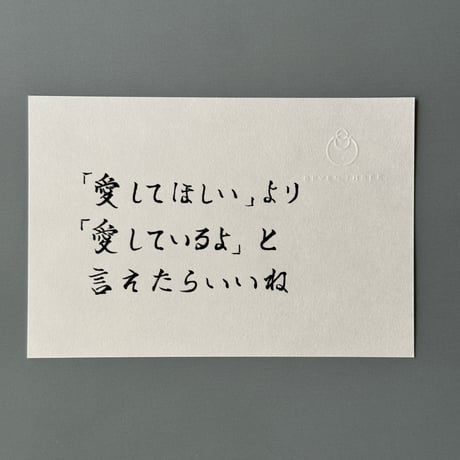 「愛してほしい」より
「愛しているよ」と
言えたらいいね